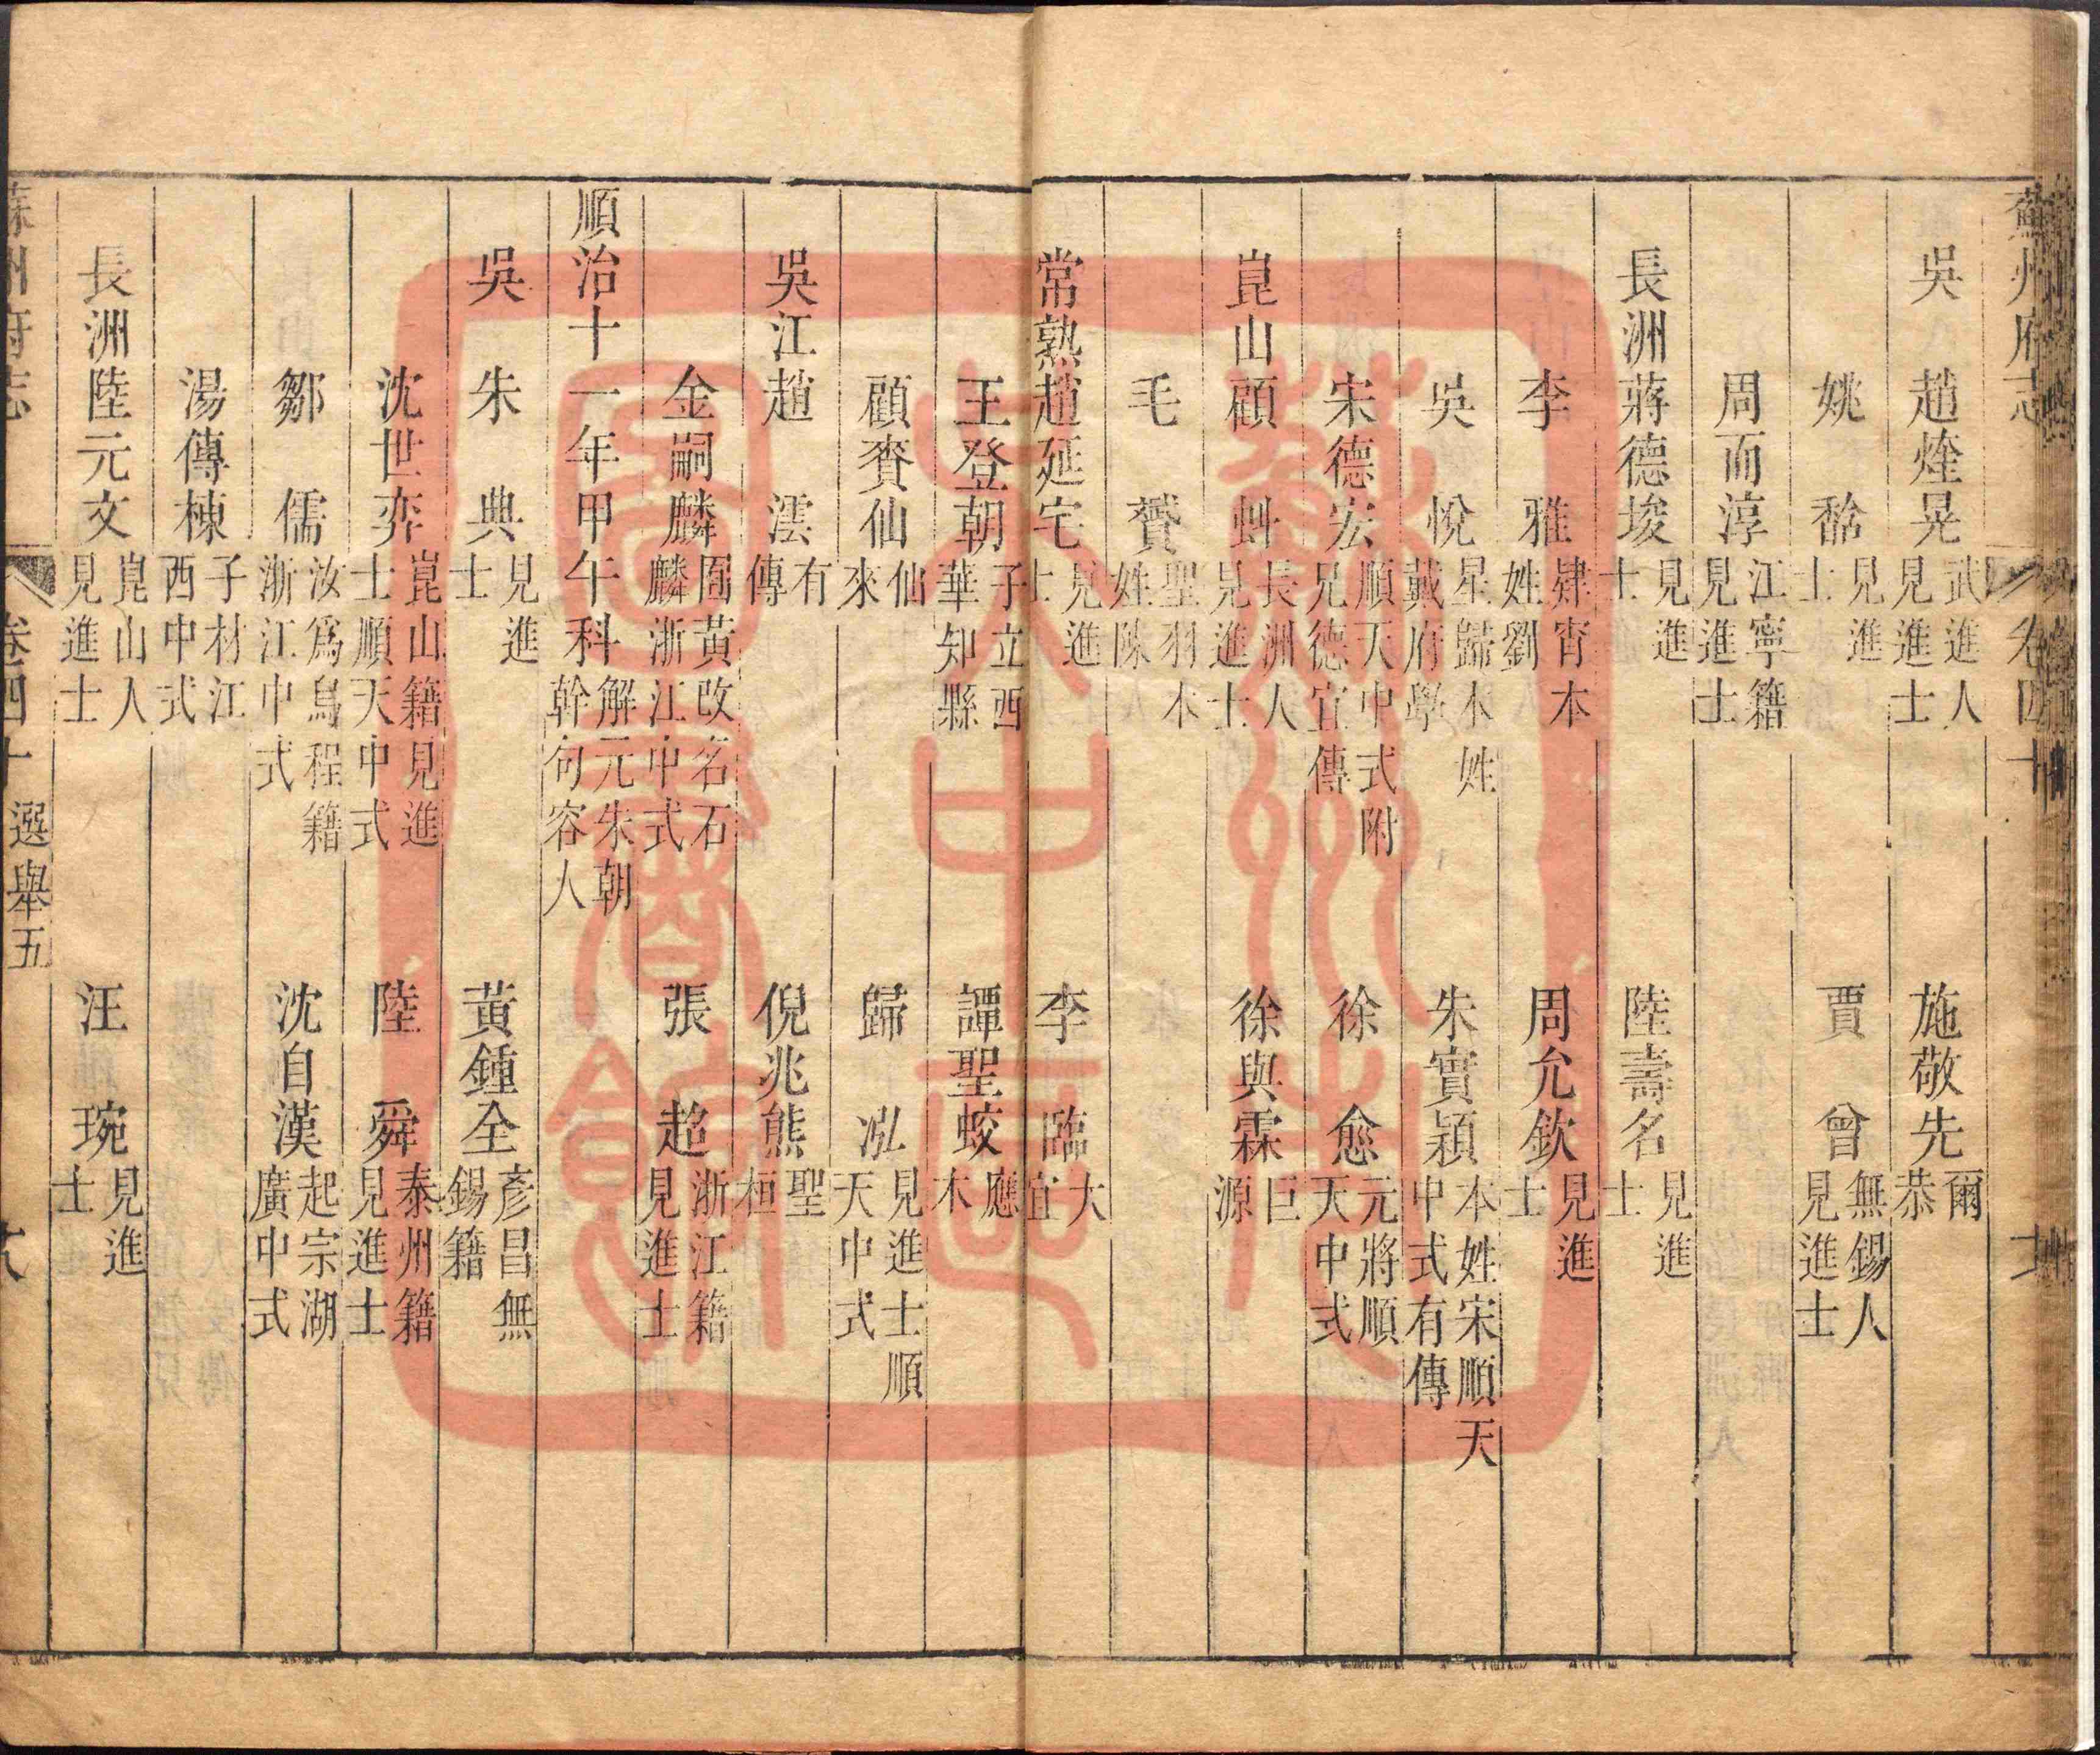 蘇州府志 卷四十
吳 趙煃晃 武進人見進士 施敬先 爾恭
姚𪏭 見進士 賈曾 無錫人見進士
周而淳 江寧籍見進士
長洲 蔣德埈 見進士 陸壽名 見進士
李雅 肄宵本姓劉 周允欽 見進士
吳悅 星歸本姓戴府學 朱實穎 本姓宋順天中式有傳
宋德宏 順天中式附兄德宜傳 徐愈 元將順天中式
崑山 顧𧈢 長洲人見進士 徐與霖 巨源
毛贇 聖羽本姓陳
常熟 趙延宅 見進士 李臨 大宜
王登朝 子立西華知縣 譚聖蛟 應木
顧賚仙 仙來 歸泓 見進士順天中式
吳江 趙澐 有傳 倪兆熊 聖桓
金嗣麟 囿黃改名石麟浙江中式 張超 浙江籍見進士
順治十一年甲午科 解元朱朝幹句容人
吳 朱典 見進士 黃鍾全 彥昌無錫籍
沈世奕 崑山籍見進士順天中式 陸舜 泰州籍見進士
鄒儒 汝爲烏程籍浙江中式 沈自漢 起宗湖廣中式
湯傳楝 子材江西中式
長洲 陸元文 崑山人見進士 汪琬 見進士
蘇州府志 卷四十 選舉五